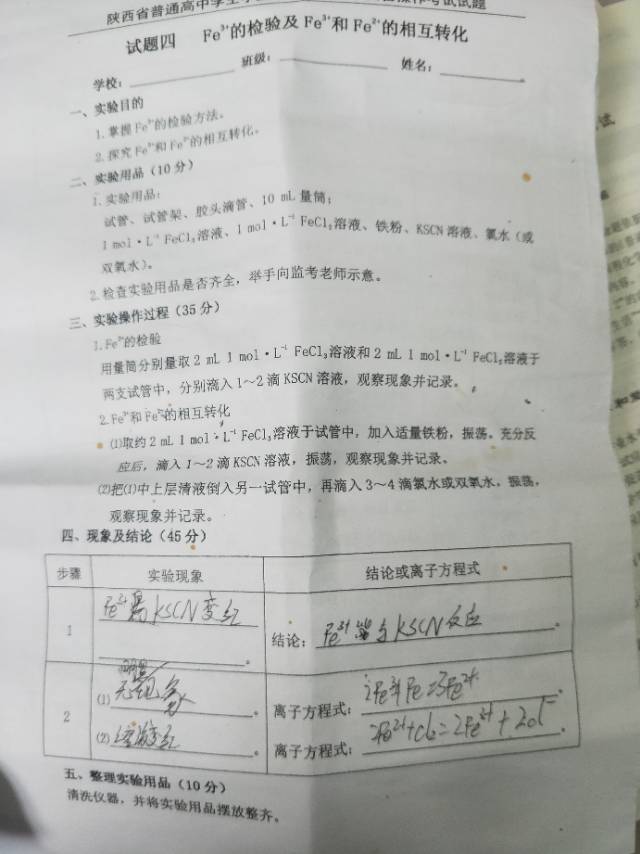 陕西省普通高中学生学 操作考试试题
试题四 Fe³⁺的检验及Fe³⁺和Fe²⁺的相互转化
学校： 班级： 姓名：
一、实验目的
1.掌握Fe³⁺的检验方法。
2.探究Fe³⁺和Fe²⁺的相互转化。
二、实验用品（10分）
1.实验用品：
试管、试管架、胶头滴管、10 mL量筒；
1 mol·L⁻¹ FeCl₃溶液、1 mol·L⁻¹ FeCl₂溶液、铁粉、KSCN溶液、氯水（或
双氧水）。
2.检查实验用品是否齐全，举手向监考老师示意。
三、实验操作过程（35分）
1.Fe³⁺的检验
用量筒分别量取2 mL 1 mol·L⁻¹ FeCl₃溶液和2 mL 1 mol·L⁻¹ FeCl₂溶液于
两支试管中，分别滴入1～2滴KSCN溶液，观察现象并记录。
2.Fe³⁺和Fe²⁺的相互转化
⑴取约2 mL 1 mol·L⁻¹ FeCl₃溶液于试管中，加入适量铁粉，振荡。充分反
应后，滴入1～2滴KSCN溶液，振荡，观察现象并记录。
⑵把⑴中上层清液倒入另一试管中，再滴入3～4滴氯水或双氧水，振荡，
观察现象并记录。
四、现象及结论（45分）
步骤 实验现象 结论或离子方程式
1 Fe³⁺遇KSCN变红 。 结论：Fe³⁺能与KSCN反应 。
2 ⑴ 。 离子方程式：2Fe³⁺+Fe=3Fe²⁺ 。
⑵溶液变红 。 离子方程式：2Fe²⁺+Cl₂=2Fe³⁺+2Cl⁻ 。
五、整理实验用品（10分）
清洗仪器，并将实验用品摆放整齐。